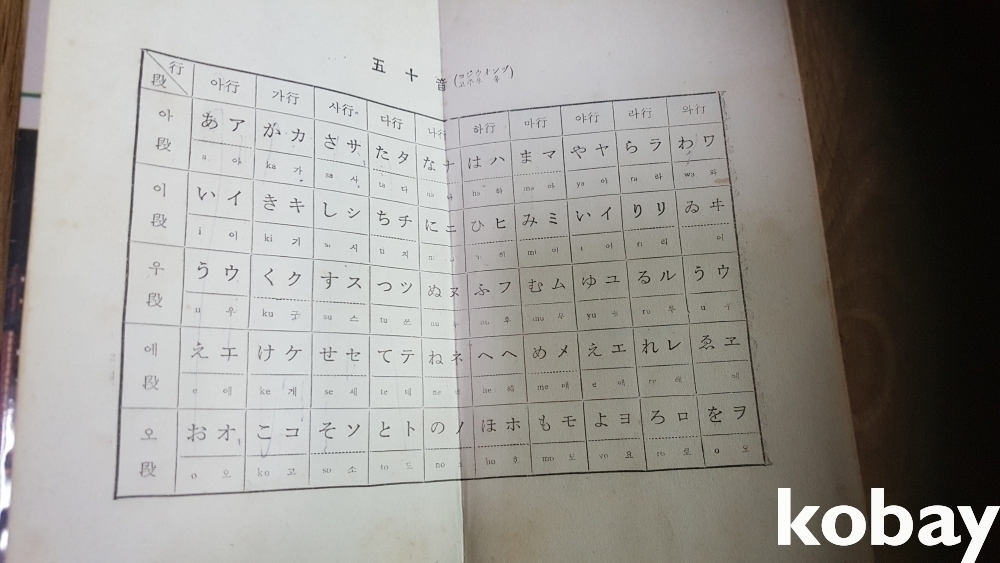 五十音
行
段 아行 가行 사行 다行 나行 하行 마行 야行 라行 와行
아 あア がカ さサ たタ なナ はハ まマ やヤ らラ わワ
段 a 아 ka 가 sa 사 ta 다 na 나 ha 하 ma 마 ya 야 ra 라 wa 와
이 いイ きキ しシ ちチ にニ ひヒ みミ いイ りリ ゐヰ
段 i 이 ki 기 si 시 ti 지 히 mi 미 i 이 ri 리 이
우 うウ くク すス つツ ぬヌ ふフ むム ゆユ るル うウ
段 u 우 ku 구 su 스 tu 쓰 nu 후 mu 무 yu ru 루 u 우
에 えエ けケ せセ てテ ねネ へヘ めメ えエ れレ ゑヱ
段 e 에 ke 게 se 세 te 데 ne he 헤 me 메 e 에 re 레 에
오 おオ こコ そソ とト のノ ほホ もモ よヨ ろロ をヲ
段 o 오 ko 고 so 소 to 도 no ho 호 mo 모 yo 요 ro 로 o 오
kobay